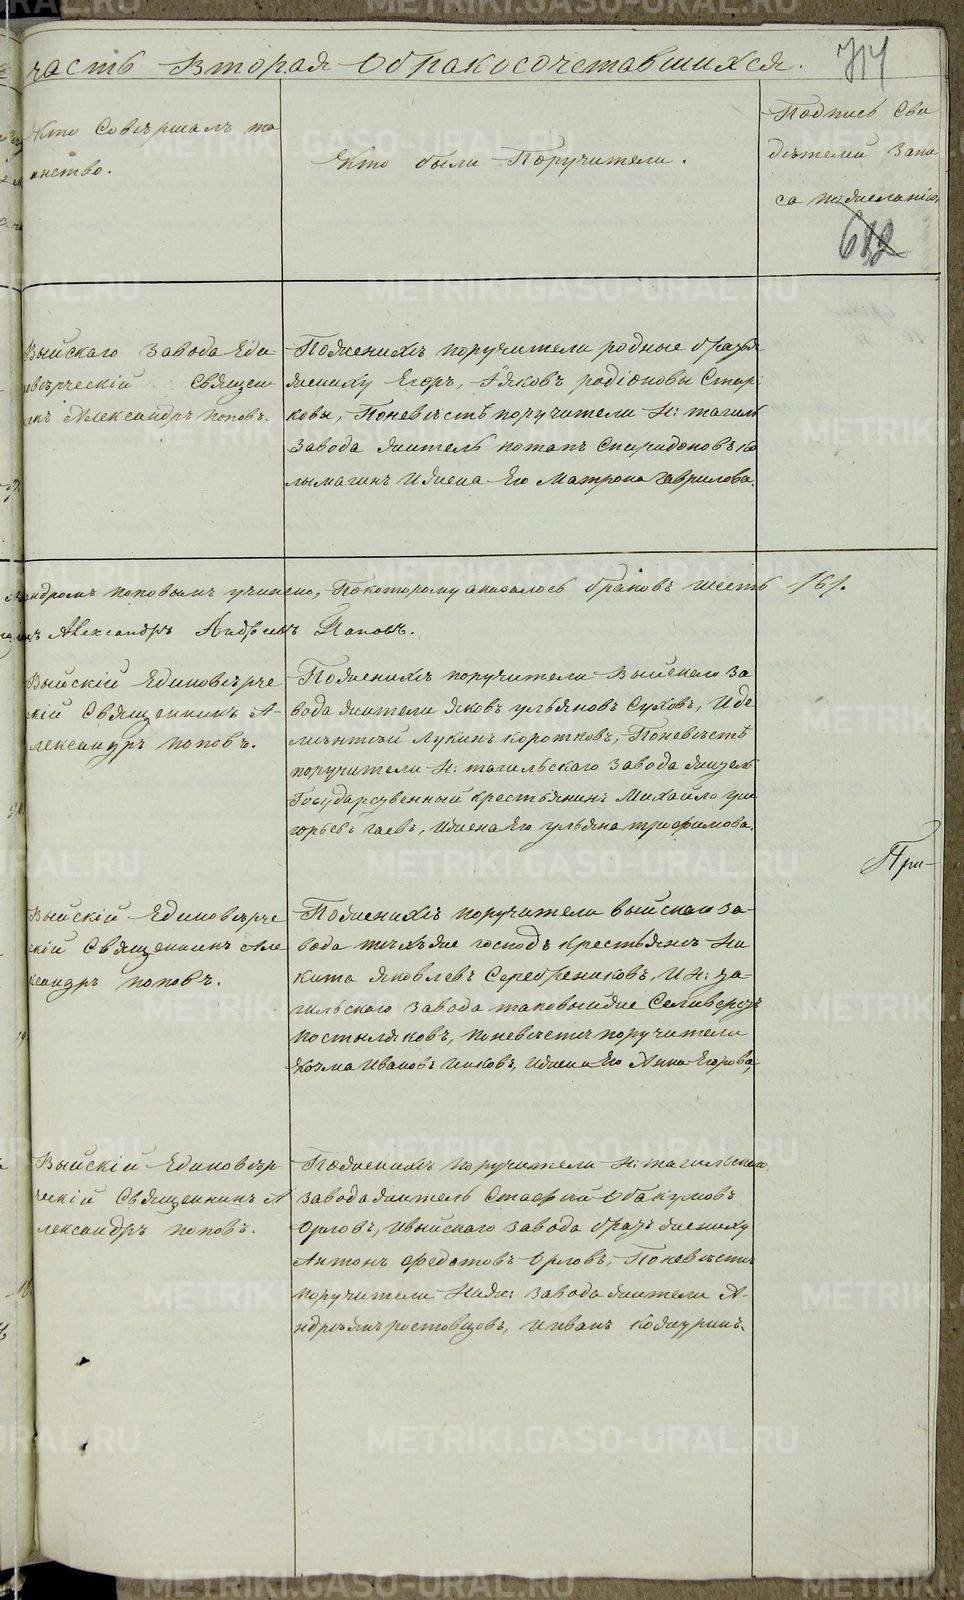 часть Вторая Обракосочетавшихся. 714
Кто Совершалъ та
инство.
Кто были Поручители.
Подпись Сви
дѣтелей Запи
са пожеланію,
682
Выйскаго Завода Еди
новѣрческій Священ
никъ Александръ Поповъ.
Поженихѣ поручители родные братья
жениху Егоръ, Яковъ родіоновы Стар
ковы, Поневѣстѣ поручители Н: тагиль
Завода житель потапъ Спиридоновъ Ко
лымагинъ и жена Его Матрона гаврилова.
андромъ поповымъ учинено, Покоторому оказалось браковъ шесть /6/.
Александръ Андреевъ Поповъ.
Выйскій Единовѣрче
скій Священникъ А-
лександръ поповъ.
Поженихѣ поручители Выйскаго За
вода жители яковъ ульяновъ Суховъ, И де
ментій Лукинъ коротковъ, Поневѣстѣ
поручители Н: тагильскаго Завода житель
Государственный крестьянинъ Михайло гри
горьевъ гаевъ, ижена Его ульяна трофимова.
При-
Выйскій Единовѣрче
скій Священникъ Але
ксандръ поповъ.
Поженихѣ поручители выйскаго за-
вода тѣхъже господъ крестьяне Ни
кита яковлевъ Серебрениковъ, И Н: та-
гильскаго Завода таковыйже Селиверстъ
постыляковъ, поневѣсте поручители
Козма Ивановъ, ижена Его Анна Егорова,
Выйскій Единовѣр
ческій Священникъ А
лександръ поповъ.
Поженихѣ поручители Н: тагильскаго
завода житель Стафѣй Обакумовъ
Орловъ, ивыйскаго завода братъ жениху
Антонъ Федотовъ Орловъ, Поневѣсте
поручители Ниж: завода жители А-
ндреянъ ростовцовъ, и иванъ кожуринъ.
METRIKI.GASO-URAL.RU